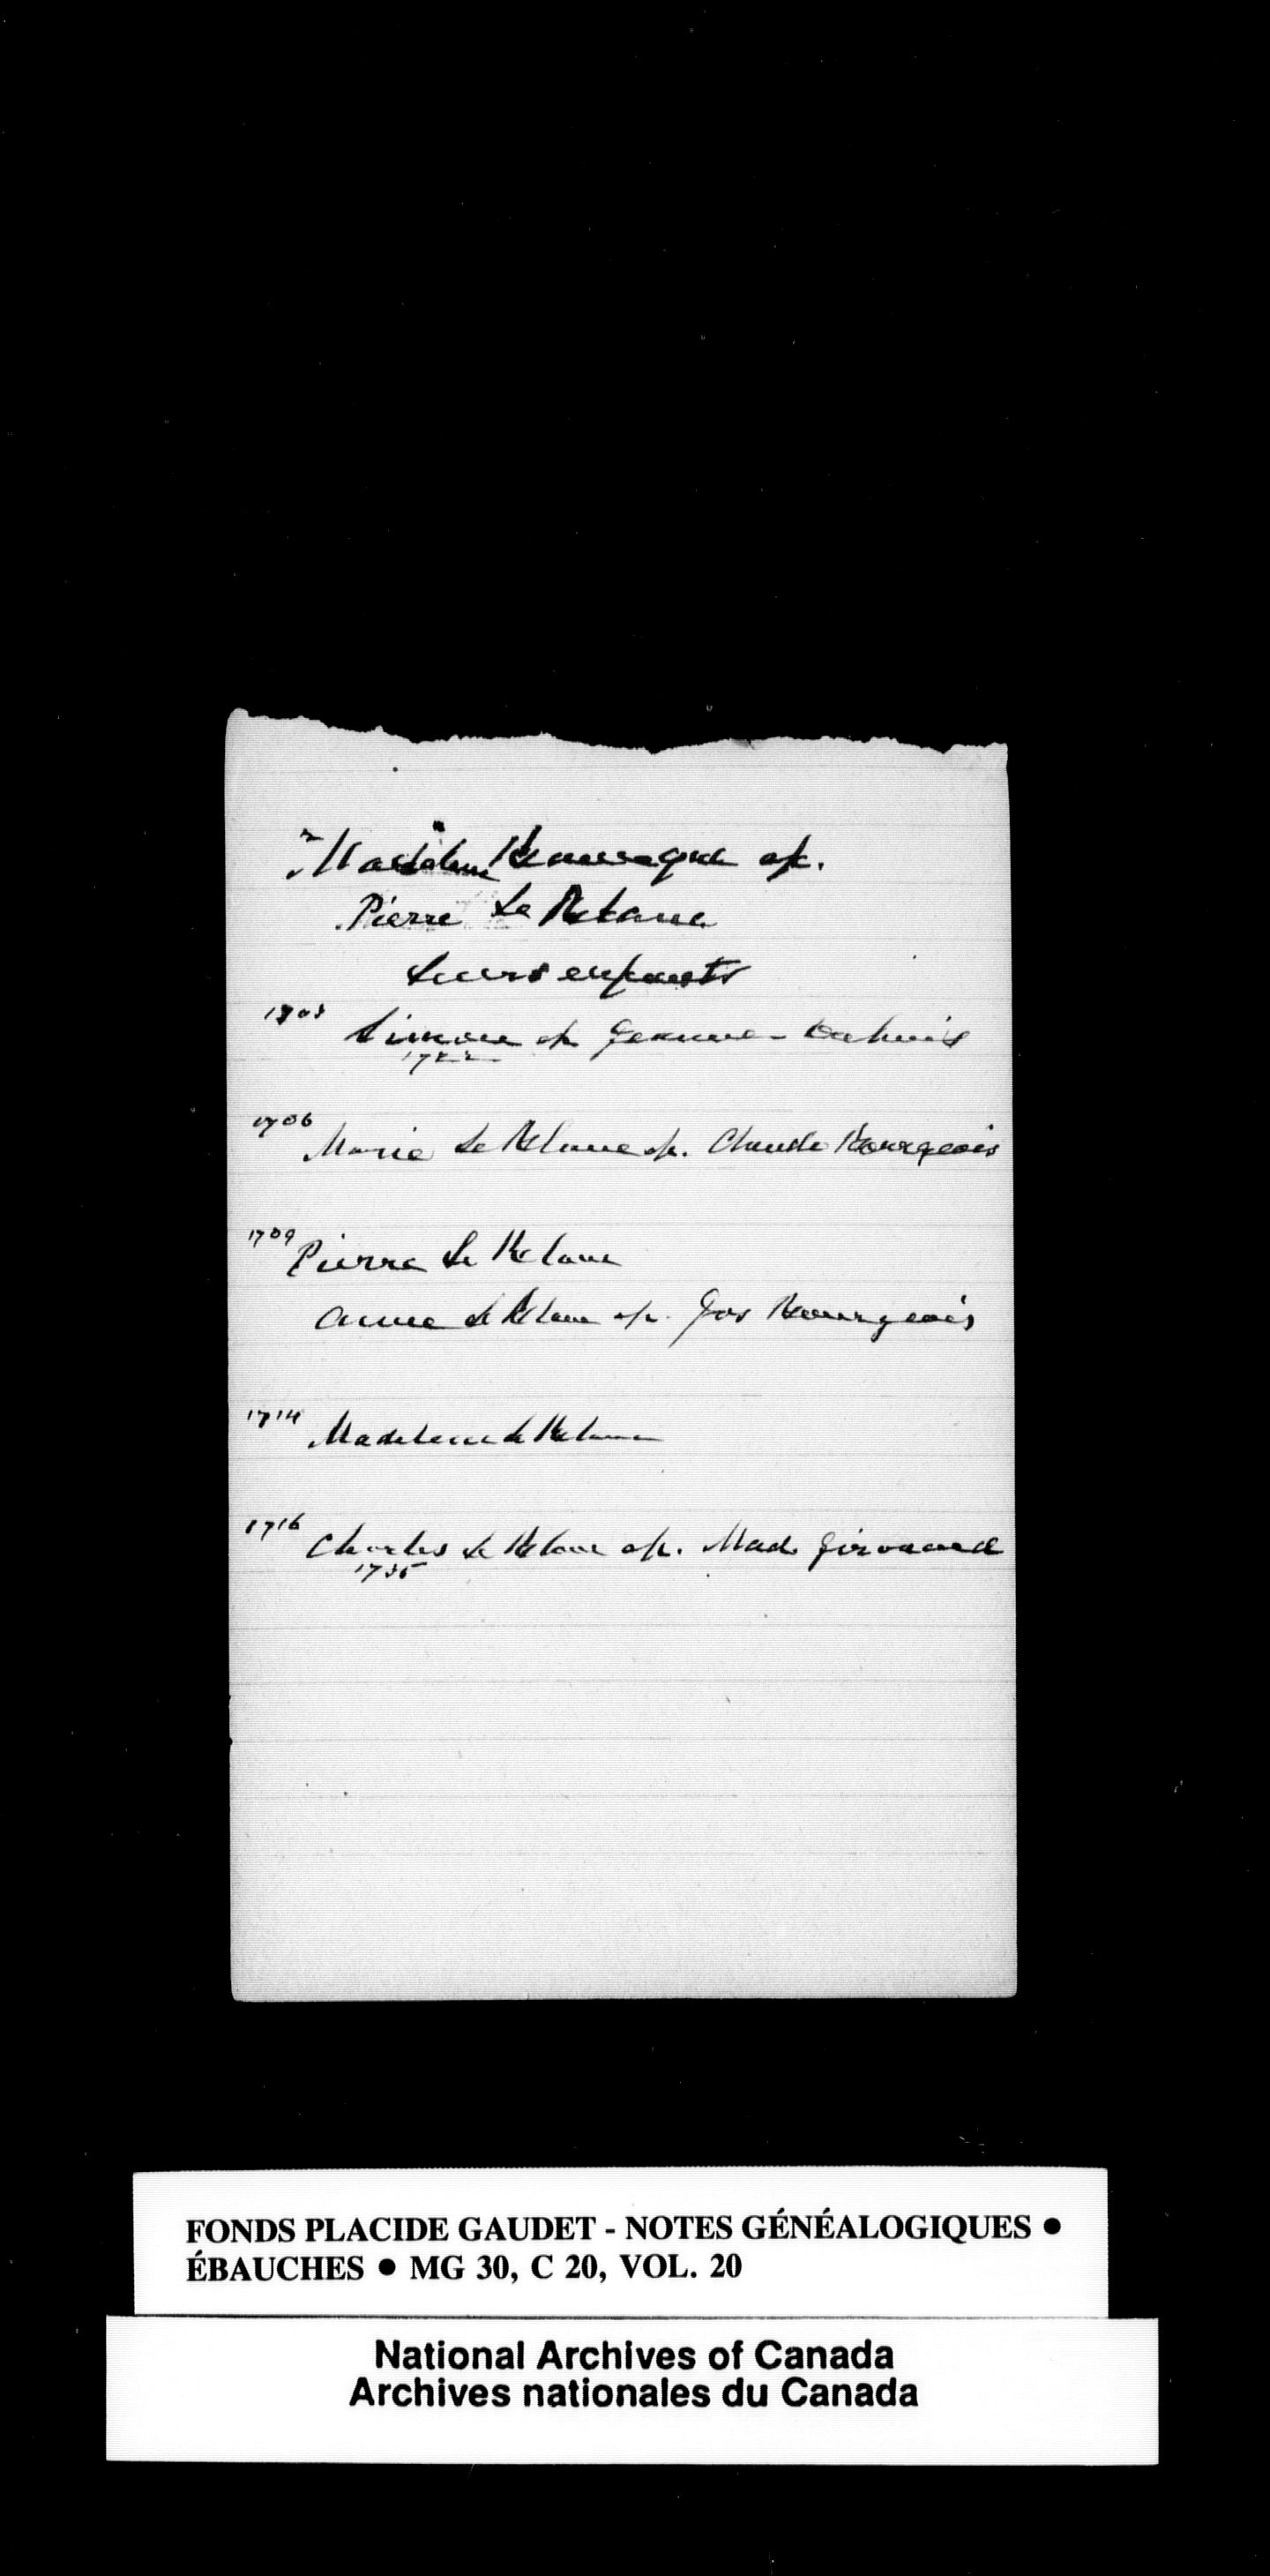 Madeleine Bourque ép.
Pierre Le Blanc
Leurs enfants
1703
Simon ép Jeanne Dupuis
1722
1706
Marie Le Blanc ép. Claude Bourgeois
1709
Pierre Le Blanc
Anne Le Blanc ép. Jos Bourgeois
1714
Madeleine Le Blanc
1716
Charles Le Blanc ép. Mad. Girouard
1735
FONDS PLACIDE GAUDET - NOTES GÉNÉALOGIQUES ●
ÉBAUCHES ● MG 30, C 20, VOL. 20
National Archives of Canada
Archives nationales du Canada